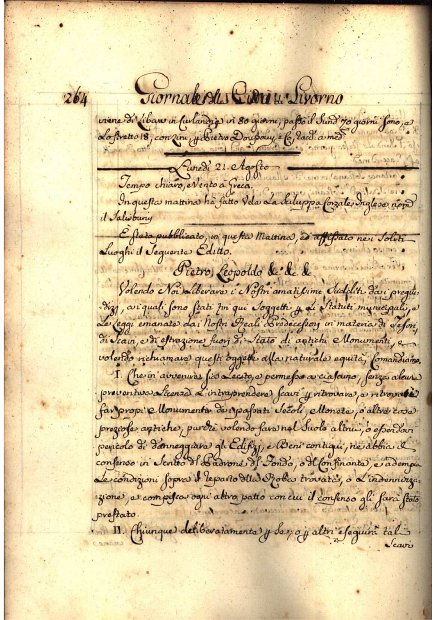 264 Giornale della Città di Livorno
viene di Libau in Curlandia in 80 giorni, passò il Sund 70 giorni sono, e
lo stretto 18, con lini, Pietro Dou
Lunedì 21. Agosto
Tempo chiaro, Vento a Greco.
In questa mattina ha fatto Vela la Inglese nom
il Salisbury
È stato pubblicato in questa Mattina, ed affissato nei Soliti
Luoghi il Seguente Editto.
Pietro Leopoldo &c &c &c
Volendo Noi liberare i Nostri amatissimi Sudditi dai pregiu
dizj, a i quali sono stati fin qui Soggetti p Li Statuti municipali, e
Le Leggi emanate dai Nostri Reali Predecessori in materia di Tesori,
di Scavi, e di estrazione fuori di Stato di antichi Monumenti, e
volendo richiamare questi oggetti alla naturale equità, Comandiamo.
I. Che in avvenire sia Lecito, e permesso a ciascuno, senza alcuna
preventiva Licenza d'intraprendere Scavi p ritrovare, e ritrovati
far propri i Monumenti dei passati Secoli, Monete, o altre cose
preziose antiche, purché volendo farsi nel Suolo altrui, o essendovi
pericolo di danneggiare gli Edifizj, e Beni contigui, ne abbia il
consenso in Scritto di Padrone del Fondo, o del Confinante, e adempia
Le condizioni sopra il reparto della Roba trovata, o L'indennizza
zione, e compisca ogni altro patto con cui il consenso gli sarà stato
prestato.
II. Chiunque deliberatamente p Se, o p altri eseguirà tal
Scavi